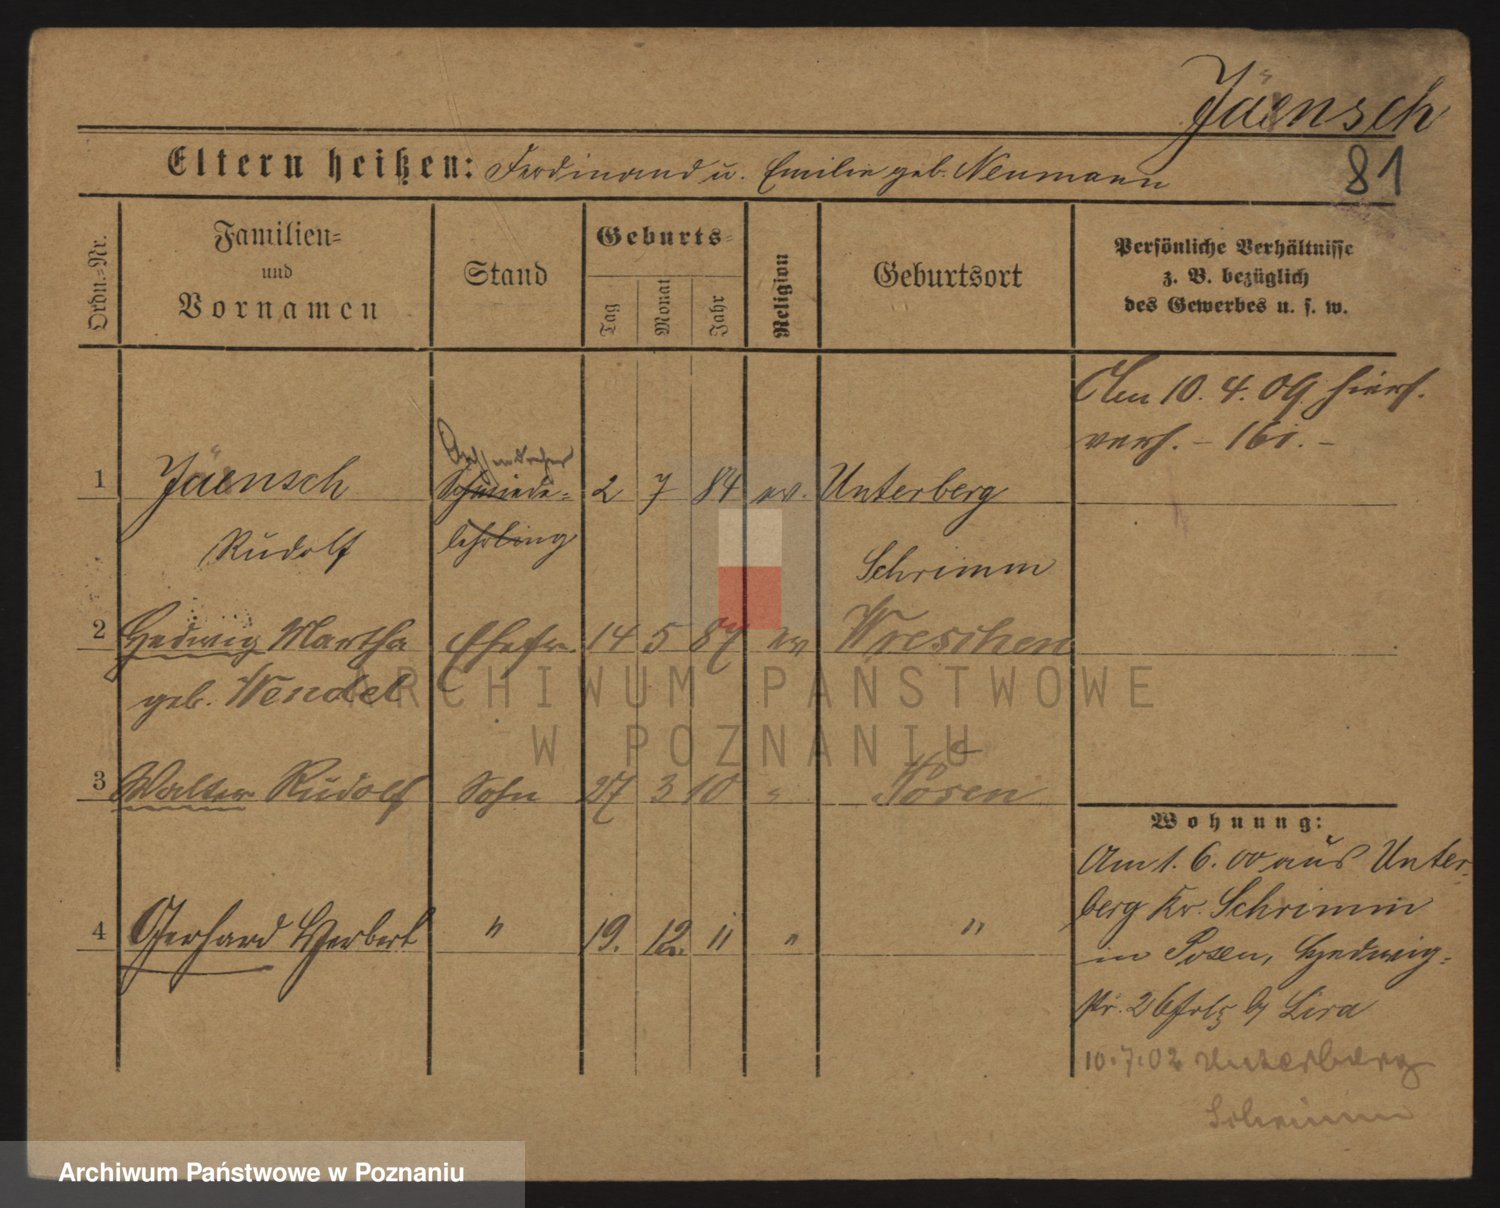 Jäensch
81
Eltern heißen: Ferdinand u. Emilie geb. Neumann
Ordn.-Nr.
Familien-
und
Vornamen
Stand
Geburts-
Tag
Monat
Jahr
Religion
Geburtsort
Persönliche Verhältnisse
z. B. bezüglich
des Gewerbes u. s. w.
Am 10. 4. 09 hiers.
verh. –
1 Jäensch Schmiede- 2 7 84 ev. Unterberg
Rudolf lehrling Schrimm
2 Hedwig Martha Ehefr. 14 5 87 ev Wreschen
geb. Wendel
3 Walter Rudolf Sohn 27 3 10 " Posen
4 Gerhard Herbert " 19. 12. 11 " "
Wohnung:
Am 1. 6. 00 aus Unter-
berg Kr. Schrimm
in Posen, Hedwig-
b/ Lira
10.7.02 Unterberg
Schrimm
ARCHIWUM PAŃSTWOWE
W POZNANIU
Archiwum Państwowe w Poznaniu